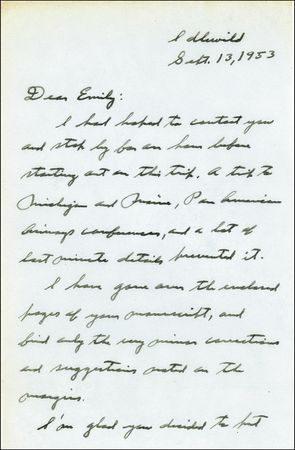 Idlewild
Sept. 13, 1953
Dear Emily:
I had hoped to contact you
and stop by for an hour before
starting out on this trip. A trip to
Michigan and Maine, Pan American
Airways conferences, and a lot of
last minute details prevented it.
I have gone over the enclosed
pages of your manuscript, and
find only the very minor corrections
and suggestions noted on the
margins.
I'm glad you decided to put